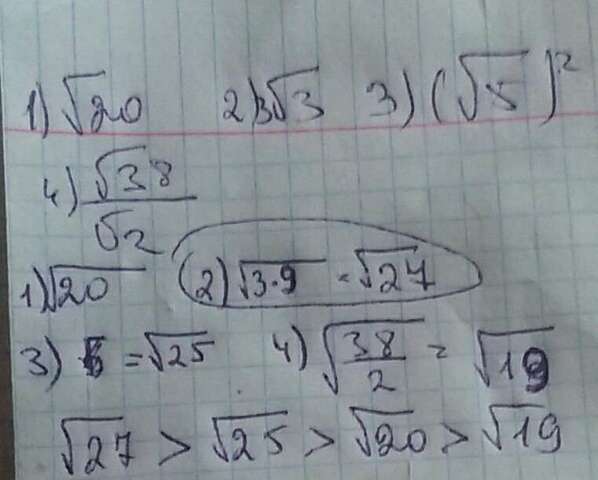 1) √20 2) 3√3 3) (√5)²
4) √38/√2
1) √20 (2) √3·9 = √27
3) 5 = √25 4) √38/2 = √19
√27 > √25 > √20 > √19